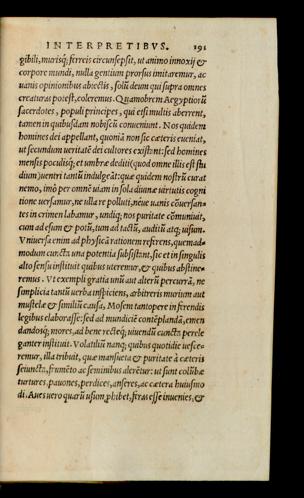 INTERPRETIBVS. 191
gibili, murisq; ferreis circunsepsit, ut animo innoxij &
corpore mundi, nulla gentium prorsus imitaremur, ac
uanis opinionibus abiectis, solũ deum qui supra omnes
creaturas potest, coleremus. Quamobrem Aegyptiorũ
sacerdotes, populi principes, qui etsi multis aberrent,
tamen in quibusdam nobiscũ conueniunt. Nos quidem
homines dei appellant, quoniã non sic cæteris eueniat,
ut secundum ueritatẽ dei cultores existant: sed homines
mensis poculisq; et umbræ dediti (quod omne illis est stu
dium) uentri tantũ indulgeãt: quæ quidem nostrũ curat
nemo, imò per omnẽ uitam in sola diuinæ uirtutis cogni
tione uersamur, ne ulla re polluti, neue uanis cõuersan=
tes in crimen labamur, undiq; nos puritate cõmuniuit,
cum ad esum & potũ, tum ad tactũ, auditũ atq; uisum.
Vniuersa enim ad physicã rationem referens, quemad=
modum cuncta una potentia subsistant, sic et in singulis
alto sensu instituit quibus uteremur, & quibus abstine=
remus. Vt exempli gratia unũ aut alterũ percurrã, ne
simplicia tantũ uerba inspiciens, arbitreris murium aut
mustelæ & similiũ causa, Mosem tantopere in ferendis
legibus elaborasse: sed ad mundiciẽ contẽplandã, emen
dandosq; mores, ad bene recteq; uiuendũ cuncta perele
ganter instituit. Volatiliũ nanq; quibus quotidie uesce=
remur, illa tribuit, quæ mansueta & puritate à cæteris
seiuncta, frumẽto ac seminibus alerẽtur: ut sunt colũbæ
turtures, pauones, perdices, anseres, ac cætera huiusmo
di. Aues uero quarũ usum phibet, feras esse inuenies, &